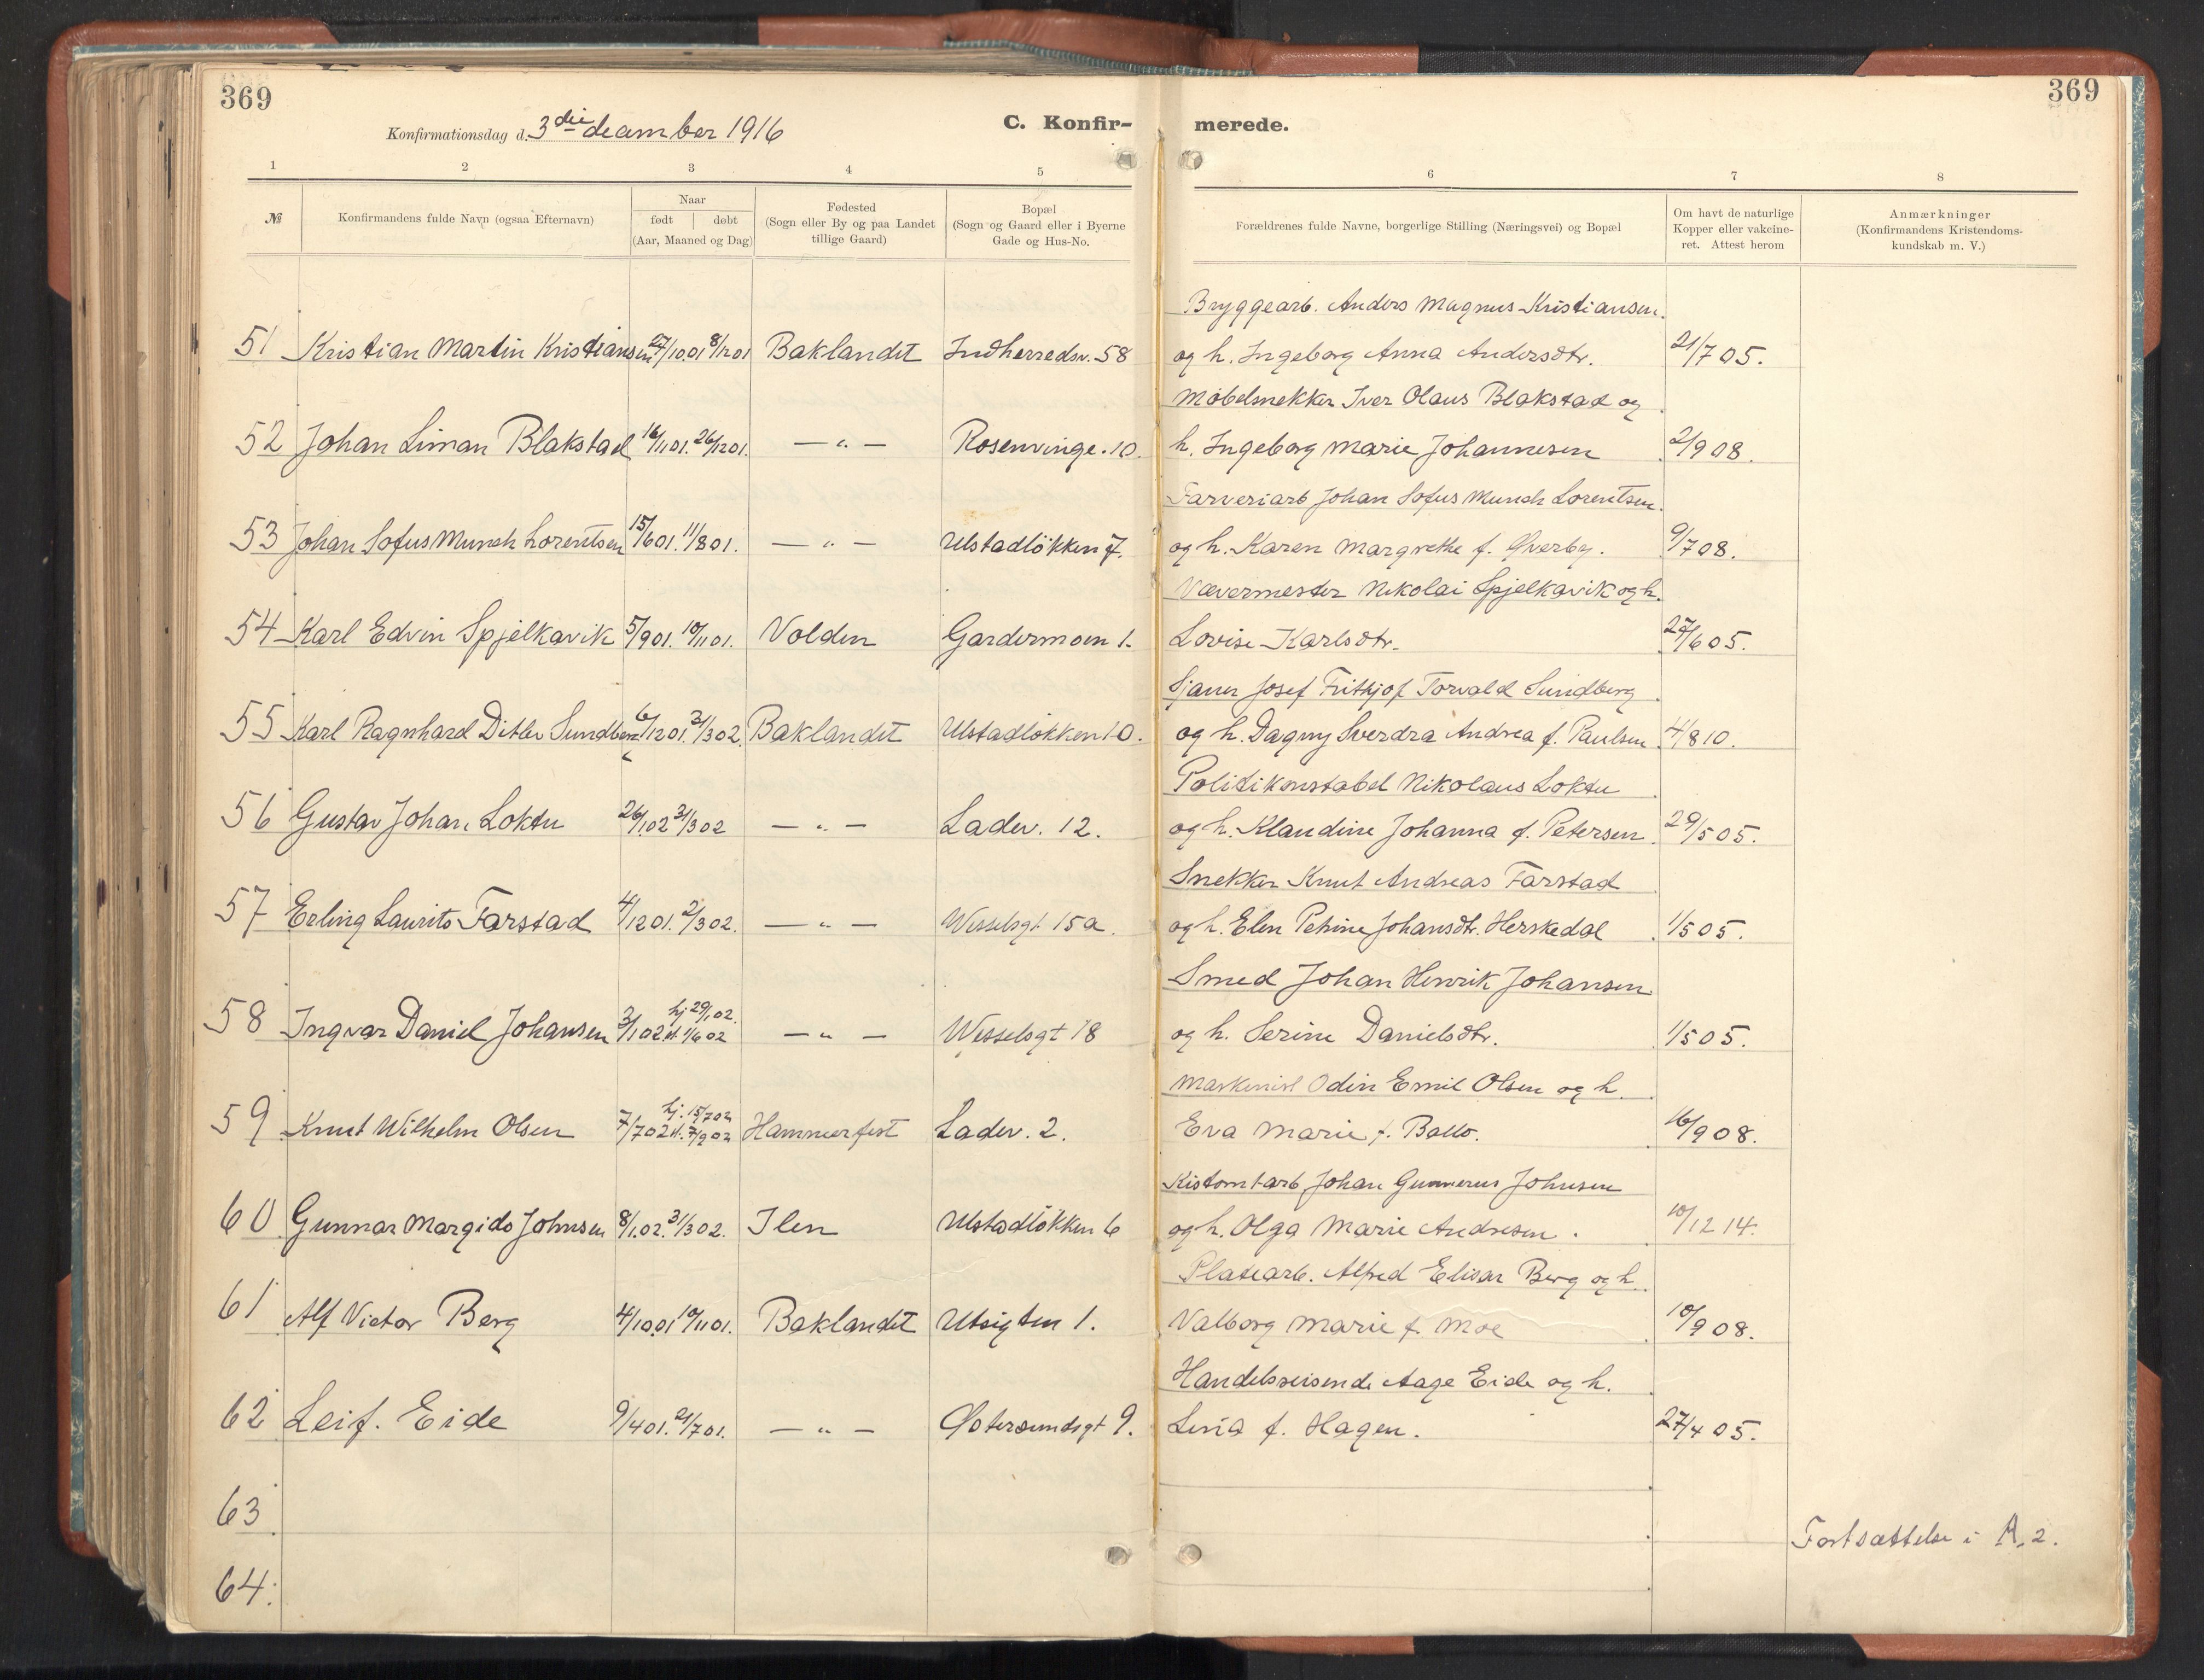 369
369
Konfirmationsdag d. 3die december 1916
C. Konfir-
merede.
1 2 3 4 5 6 7 8
№
Konfirmandens fulde Navn (ogsaa Efternavn)
Naar
født døbt
(Aar, Maaned og Dag)
Fødested
(Sogn eller By og paa Landet
tillige Gaard)
Bopæl
(Sogn og Gaard eller i Byerne
Gade og Hus-No.
Forældrenes fulde Navne, borgerlige Stilling (Næringsvei) og Bopæl
Om havt de naturlige
Kopper eller vakcine-
ret. Attest herom
Anmærkninger
(Konfirmandens Kristendoms-
kundskab m. V.)
Bryggearb. Anders Magnus Kristiansen
51 Kristian Martin Kristiansen 27/10.01 8/12 01 Baklandet Indherredsv. 58 og h. Ingeborg Anna Andersdtr. 21/7 05.
Møbelsnekker Iver Olaus Blakstad og
52 Johan Liman Blakstad 16/11 01. 26/12 01. — " — Rosenvinge. 10. h. Ingeborg Marie Johannesen 2/9 08.
Farveriarb Johan Sofus Munch Lorentsen.
53 Johan Sofus Munch Lorentsen 15/6 01. 11/8 01. — " — Ulstadløkken 7. og h. Karen Margrethe f. Øverby. 9/7 08.
Vævermester Nikolai Spjelkavik og h.
54 Karl Edvin Spjelkavik 5/9 01. 10/11 01. Volden Gardermoen 1. Lovise Karlsdtr. 27/6 05.
Sjauer Josef Fritjof Torvald Sundberg
55 Karl Ragnhard Ditlev Sundberg 6/12 01. 31/3 02. Baklandet Ulstadløkken 10. og h. Dagny Sverdra Andrea f. Paulsen 4/8 10.
Politikonstabel Nikolaus Loktu
56 Gustav Johan Loktu 26/1 02 31/3 02 — " — Ladev. 12. og h. Klaudine Johanna f. Petersen 29/5 05.
Snekker Knut Andreas Farstad
57 Erling Laurits Farstad 4/12 01. 2/3 02. — " — Wesselsgt 15a. og h. Elen Petrine Johansdtr. Herskedal 1/5 05.
Smed Johan Henrik Johansen
hj 29/1 02.
58 Ingvar Daniel Johansen 3/1 02 st. 1/6 02 — " — Wesselsgt 18 og h. Serine Danielsdtr. 1/5 05.
Maskinist Odin Emil Olsen og h.
hj. 15/7 02
59 Knut Wilhelm Olsen 7/7 02 st. 7/9 02 Hammerfest Ladev. 2. Eva Marie f. Ballo. 16/9 08.
Johan Gunnerus Johnsen
60 Gunnar Margido Johnsen 8/1.02. 31/3 02. Ilen Ulstadløkken 6 og h. Olga Marie Andresen. 10/12 14.
Platearb. Alfred Elisar Berg og h.
61 Alf Victor Berg 4/10 01 10/11 01. Baklandet Utsigten 1. Valborg Marie f. Moe 10/9 08.
Handelsreisende Aage Eide og h.
62 Leif. Eide 9/4 01. 21/7 01. — " — Østersundsgt 9. Lina f. Hagen. 27/4 05.
63
Fortsættelse i A. 2.
64.